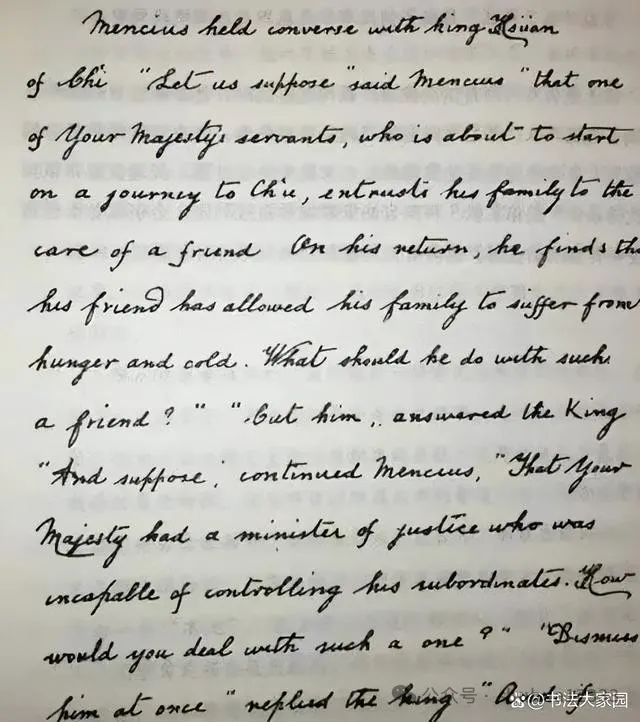 Mencius held converse with king Hsüan
of Chi "Let us suppose "said Mencius "that one
of Your Majesty's servants, who is about to start
on a journey to Ch'u, entrusts his family to the
care of a friend On his return, he finds
his friend has allowed his family to suffer from
hunger and cold. What should he do with such
a friend?" "Cut him, answered the King
"And suppose, continued Mencius, "That Your
Majesty had a minister of justice who was
incapable of controlling his subordinates. How
would you deal with such a one?" "Dismiss
him at once" replied the king "And if
公众号
@书法大家园